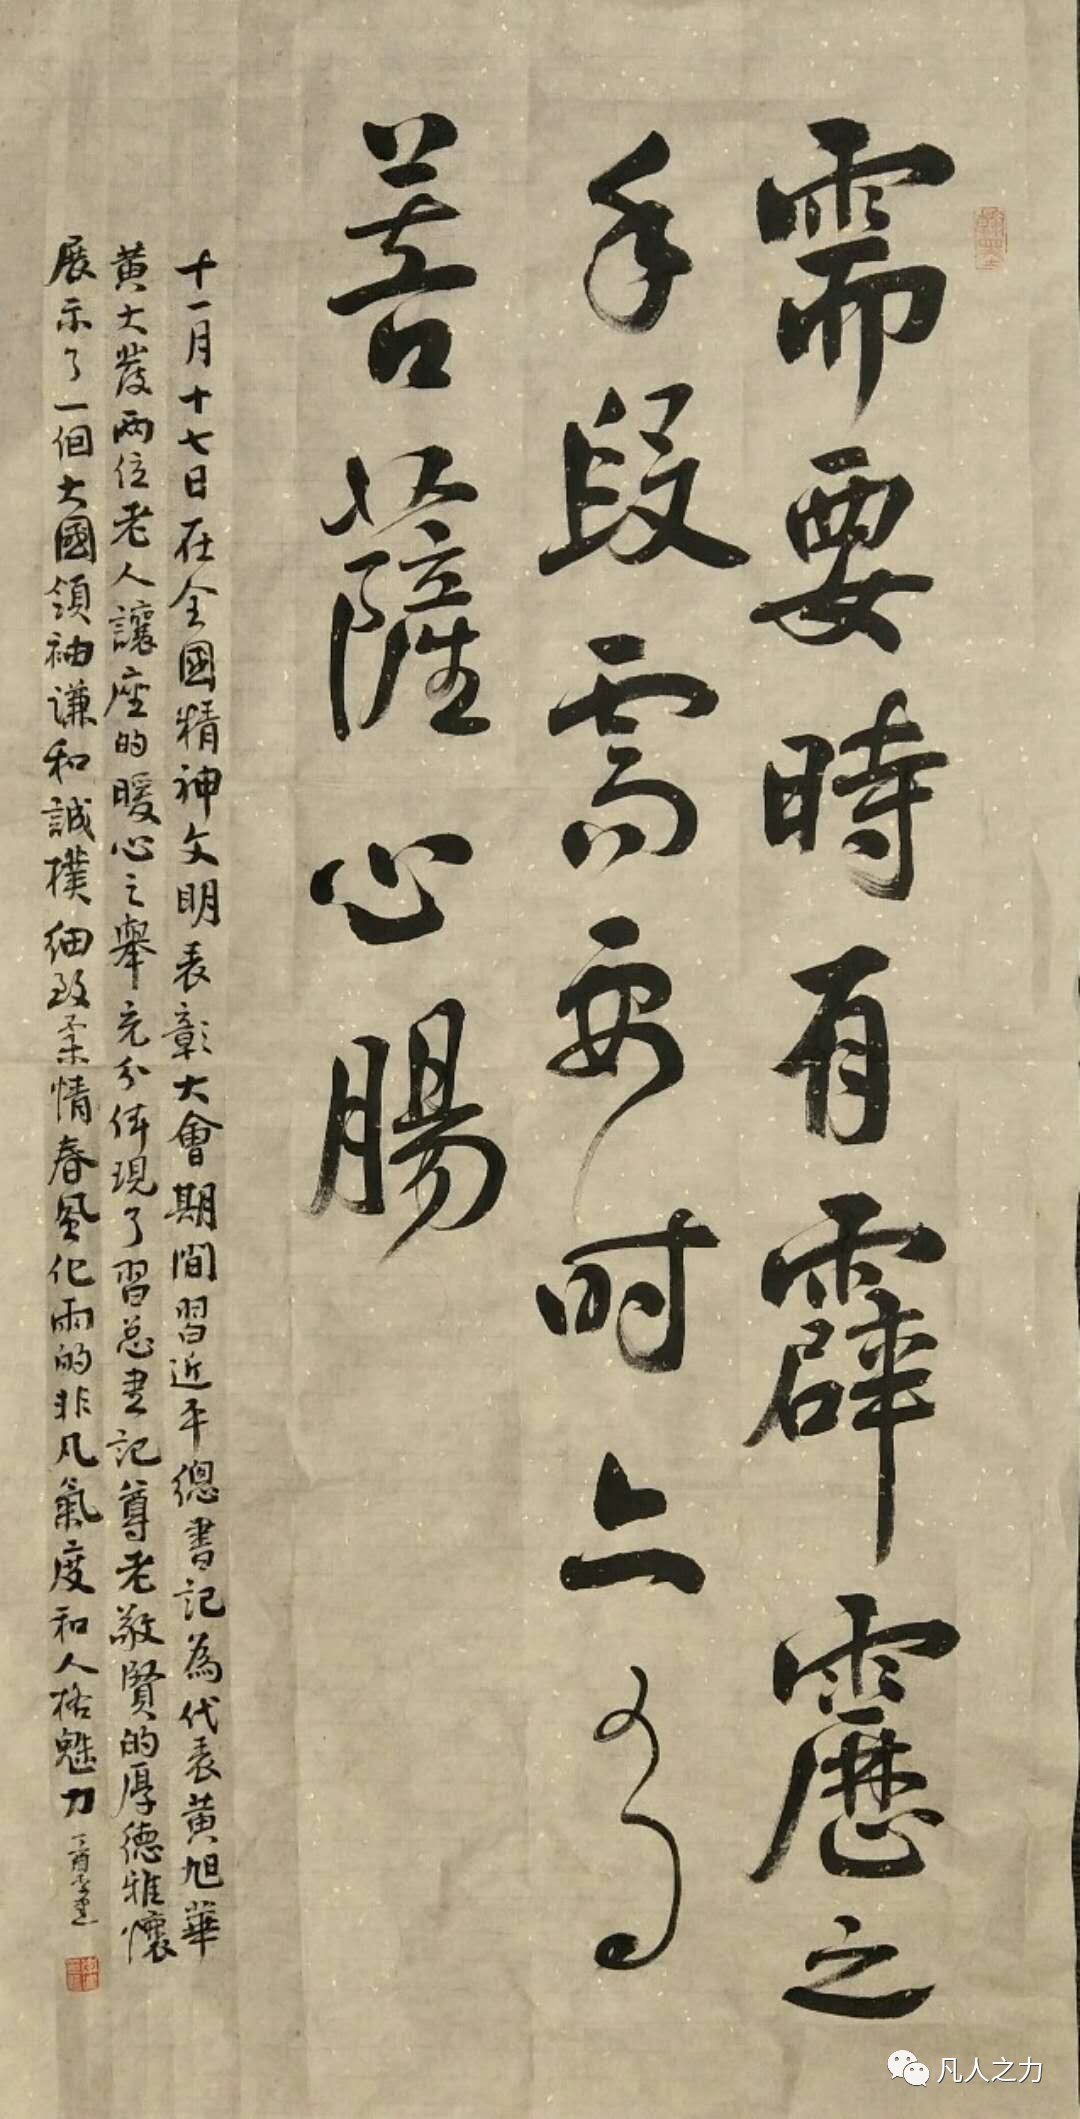 需要時有霹靂之
手段需要时亦有
菩薩心腸
十一月十七日在全國精神文明表彰大會期間習近平總書記為代表黄旭華
黄大發两位老人讓座的暖心之舉充分体現了習总書記尊老敬賢的厚德雅懷
展示了一個大國領袖谦和誠樸细致柔情春風化雨的非凡氣度和人格魅力
凡人之力